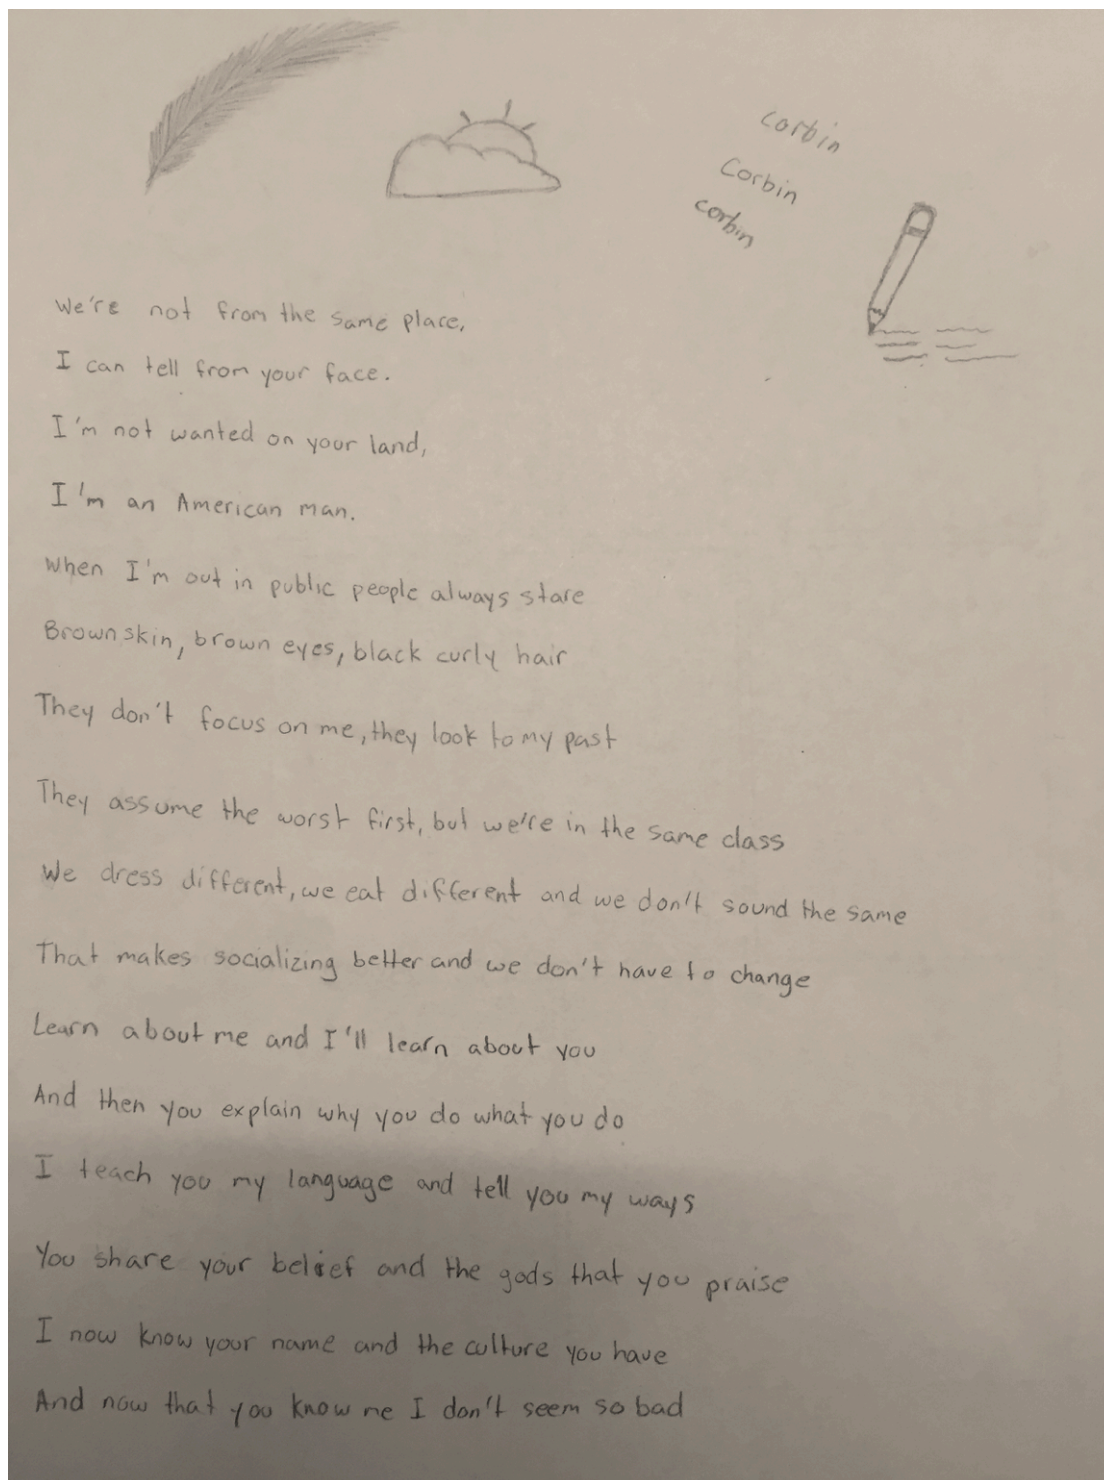 corbin
Corbin
corbin
We're not from the same place,
I can tell from your face.
I'm not wanted on your land,
I'm an American man.
When I'm out in public people always stare
Brown skin, brown eyes, black curly hair
They don't focus on me, they look to my past
They assume the worst first, but we're in the same class
We dress different, we eat different and we don't sound the same
That makes socializing better and we don't have to change
Learn about me and I'll learn about you
And then you explain why you do what you do
I teach you my language and tell you my ways
You share your belief and the gods that you praise
I now know your name and the culture you have
And now that you know me I don't seem so bad